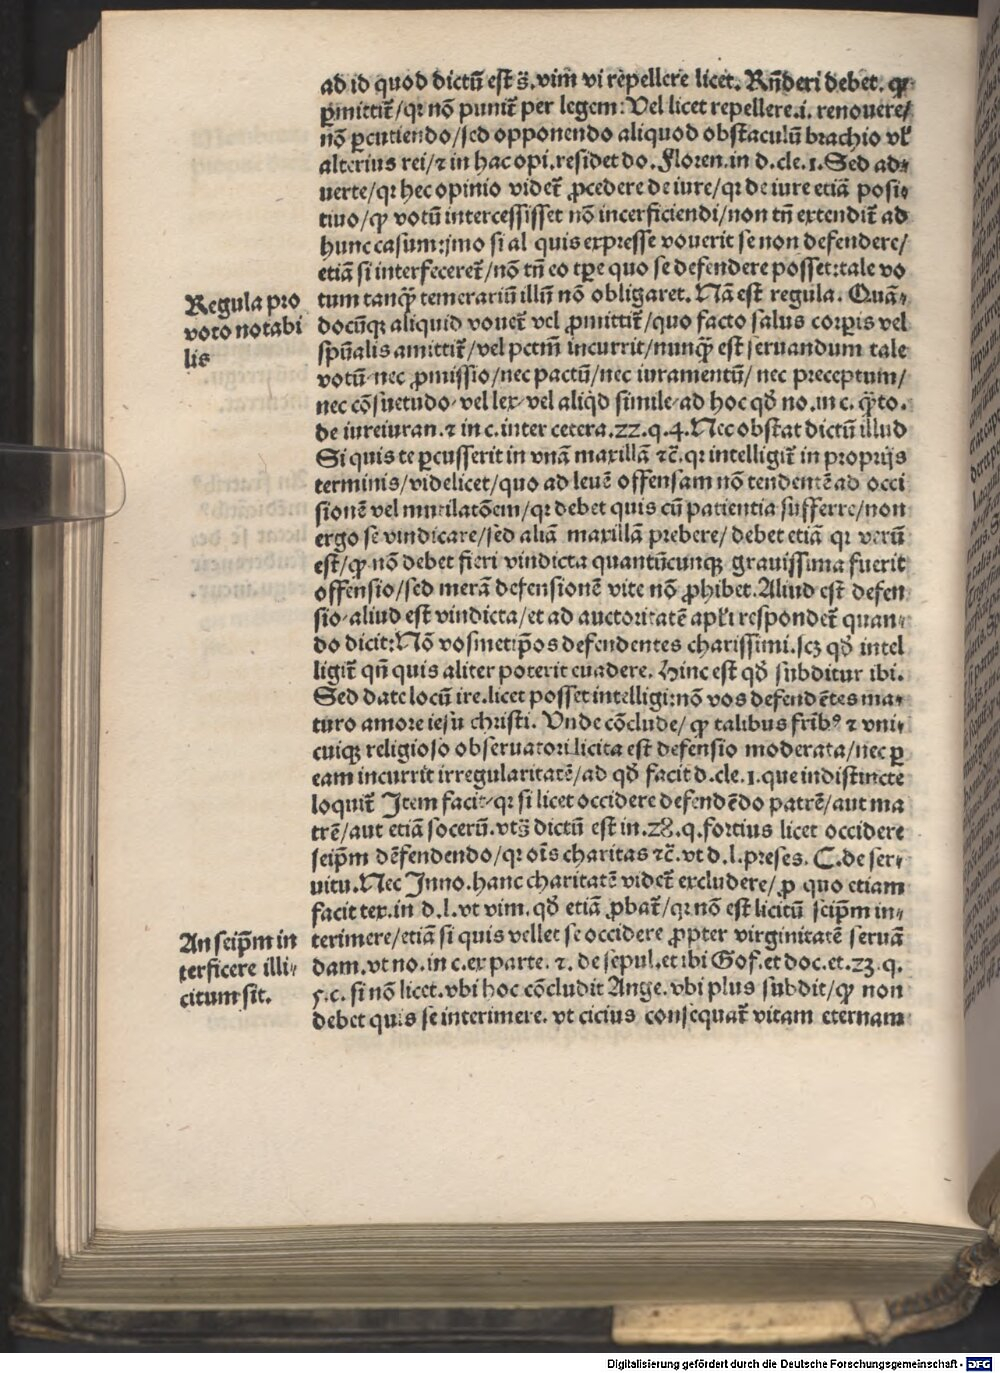 ad id quod dictū est s̄. vim vi repellere licet. Rn̄deri debet. ꝙ
ꝑmittit᷑/qꝛ nō punit᷑ per legem: Vel licet repellere .i. renouere/
nō ꝑcutiendo/sed opponendo aliquod obstaculū brachio vl̕
alterius rei/⁊ in hac opi. residet do. Floren. in d. cle. 1. Sed ad⸗
uerte/qꝛ hec opinio videt᷑ ꝓcedere de iure/qꝛ de iure etiā posi⸗
tiuo/ꝙ votū intercessisset nō incerficiendi/non tn̄ extendit᷑ ad
hunc casum: jmo si al quis expresse vouerit se non defendere/
etiā si interfeceret᷑/nō tn̄ eo tp̄e quo se defendere posset: tale vo
tum tanqꝫ̄ temerariū illū nō obligaret. Nā est regula. Quā⸗
Regula pro
voto notabi
lis
docūqꝫ aliquid vouet᷑ vel ꝓmittit᷑/quo facto salus corꝑis vel
spūalis amittit᷑/vel pctm̄ incurrit/nunqꝫ̄ est seruandum tale
votū nec ꝓmissio/nec pactū/nec iuramentū/ nec preceptum/
nec cōsuetudo/vel lex/vel aliqd̕ simile/ad hoc qd̕ no. in c. qꝫ̄to.
de iureiuran. ⁊ in c. inter cetera. 22. q. 4. Nec obstat dictū illud
Si quis te ꝑcusserit in vnā maxillā ⁊c̄. qꝛ intelligit᷑ in proprijs
terminis/videlicet/quo ad leuē offensam nō tendentē ad occi
sionē vel mutilatōem/qꝛ debet quis cū patientia sufferre/non
ergo se vindicare/sed aliā maxillā prebere/ debet etiā qꝛ verū
est/ꝙ nō debet fieri vindicta quantūcunqꝫ grauissima fuerit
offensio/sed merā defensionē vite nō ꝓhibet. Aliud est defen
sio/aliud est vindicta/et ad auctoritatē apl̕i respondet᷑ quan⸗
do dicit: Nō vosmetip̄os defendentes charissimi. scꝫ qd̕ intel
ligit᷑ qn̄ quis aliter poterit euadere. Hinc est qd̕ subditur ibi.
Sed date locū ire. licet posset intelligi: nō vos defendētes ma⸗
turo amore iesu christi. Vnde cōclude/ ꝙ talibus fr̄ibꝰ ⁊ vni⸗
cuiqꝫ religioso obseruatori licita est defensio moderata/nec ꝑ
eam incurrit irregularitatē/ad qd̕ facit d. cle. 1. que indistincte
loquit᷑ Item facit/qꝛ si licet occidere defendēdo patrē/aut ma
trē/aut etiā socerū. vts̄ dictū est in. 28. q. fortius licet occidere
seip̄m dēfendendo/qꝛ oīs charitas ⁊c̄. vt d. l. preses. C. de ser⸗
uitu. Nec Inno. hanc charitatē videt᷑ excludere/ ꝓ quo etiam
facit tex. in d. l. vt vim. qd̕ etiā ꝓbat᷑/qꝛ nō est licitū seip̄m in⸗
An seip̄m in
terficere illi⸗
citum sit.
terimere/etiā si quis vellet se occidere ꝓpter virginitatē seruā
dam. vt no. in c. ex parte. 2. de sepul. et ibi Gof. et doc. et. 23. q.
5. c. si nō licet. vbi hoc cōcludit Ange. vbi plus subdit/ꝙ non
debet quis se interimere. vt cicius consequat᷑ vitam eternam
Digitalisierung gefördert durch die Deutsche Forschungsgemeinschaft - DFG